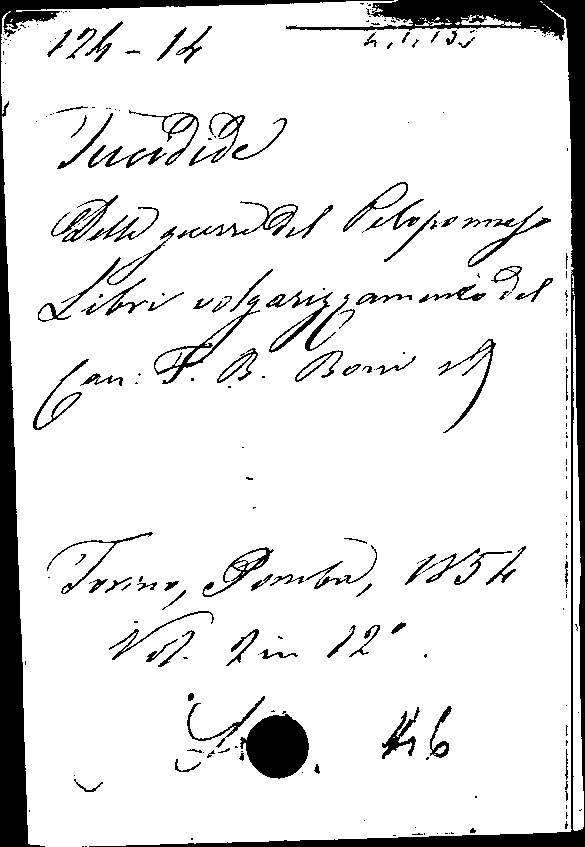 124 - 14
Tucidide
Delle guerre del Peloponneso
Libri volgarizzamento del
Can: F. B. Boni
Torino, Pomba, 1854
Vol. 2 in 12°.